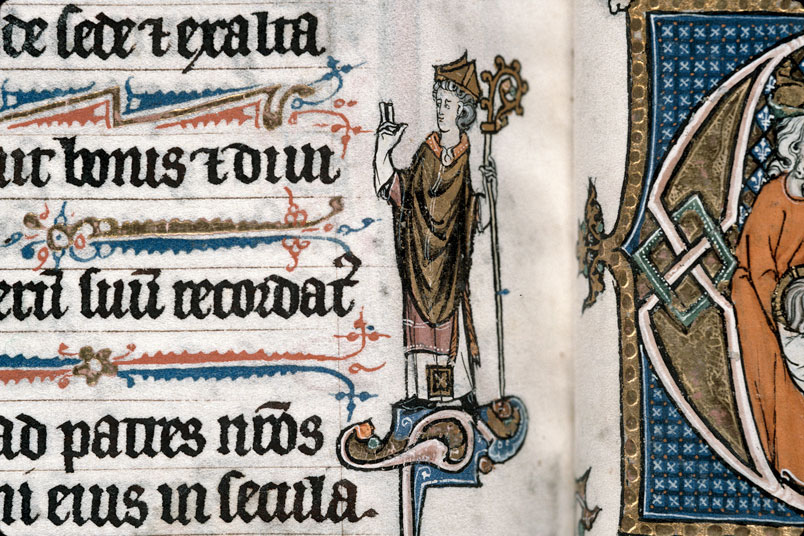 de sede ⁊ exalta
uit bonis ⁊ diui
erū suū recordat᷑
ad patres nr̄os
ni eius in secula.